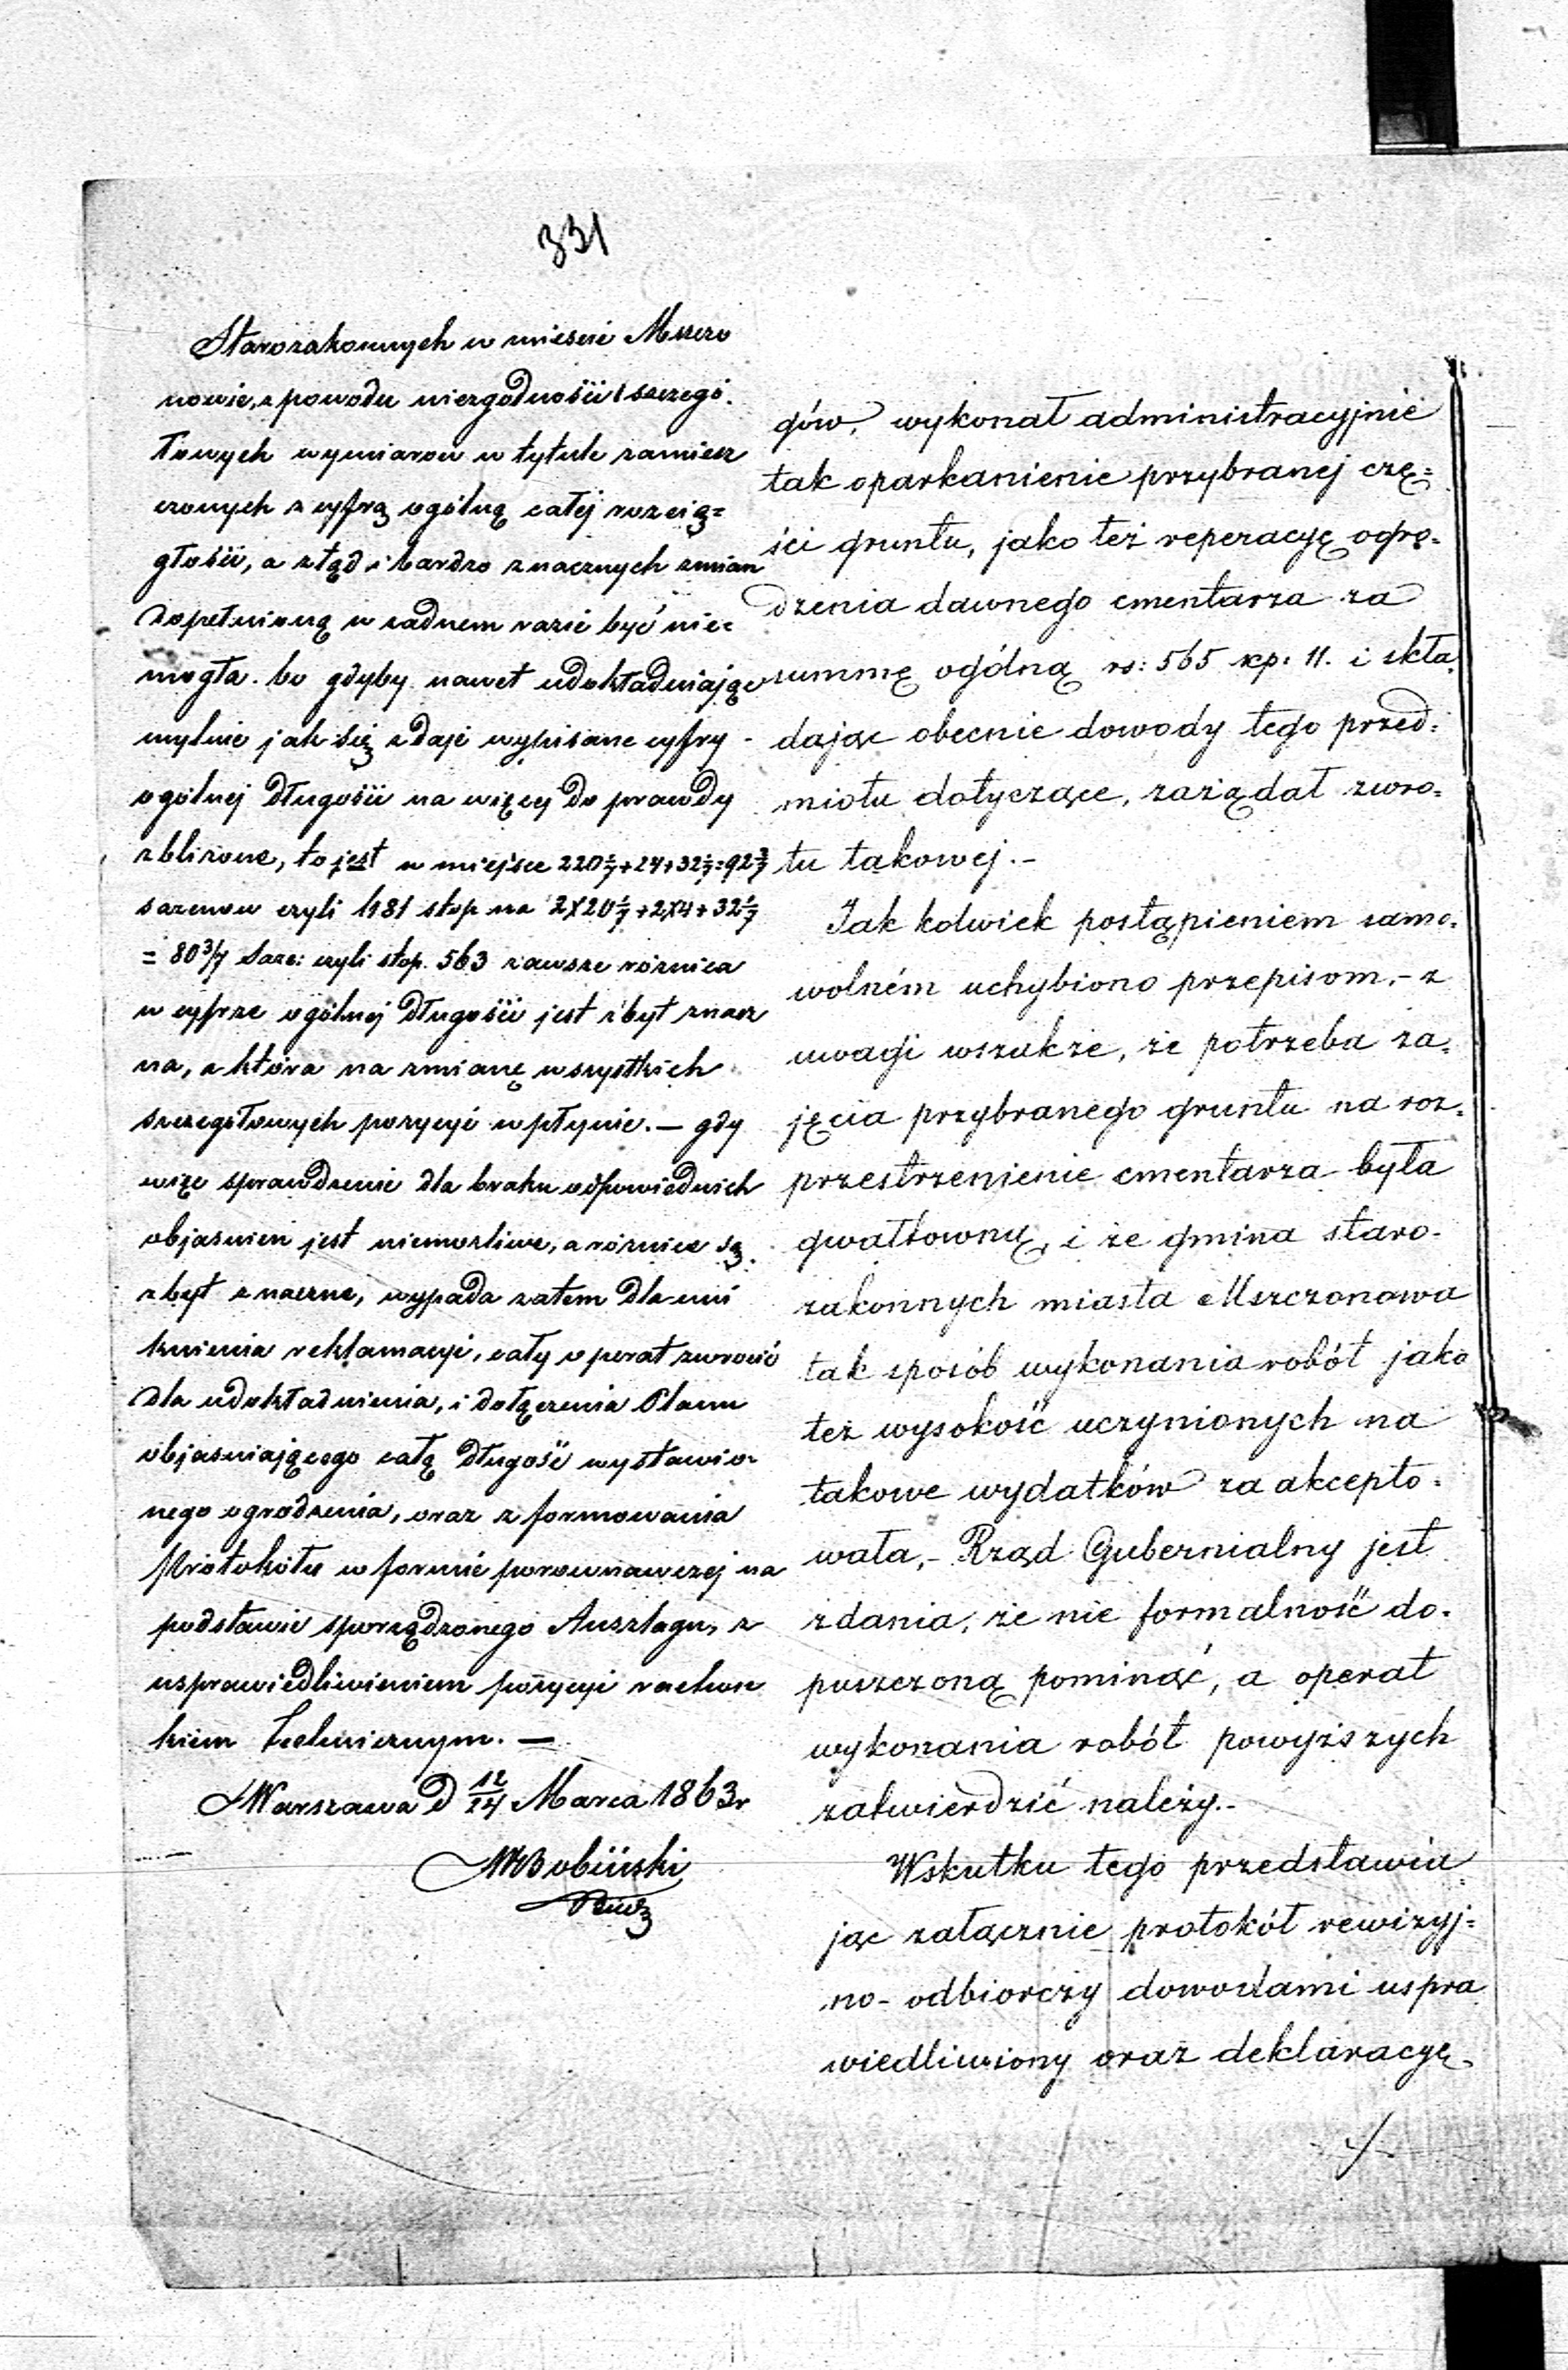 331
Starozakonnych w mieście Mszczo
nowie, z powodu niezgodności szczegó-
łowych wymiarów w tytule zamiesz
czonych z cyfrą ogólną całej rozcią=
głości, a ztąd i bardzo znacznych zmian
dopełnioną w żadnem razie być nie=
mogła. bo gdyby nawet udokładniając
mylnie jak się zdaje wypisane cyfry
ogólnej długości na więcej do prawdy
zbliżone, to jest w miejsce
sążenow czyli 1181 stóp na
= 80 3/7 Saże: czyli stop. 563 zawsze różnica
w cyfrze ogólnej długości jest zbyt znacz
na, a która na zmianę wszystkich
szczegółowych pozycyi wpłynie. — gdy
więc sprawdzenie dla braku odpowiednich
objasnien jest niemożliwe, a różnice są
zbyt znaczne, wypada zatem dla uni
knienia reklamacyi, cały operat zwrócić
dla udokładnienia, i dołączenia Planu
objasniającego całą długość wystawio-
nego ogrodzenia, oraz z formowania
Protokołu w formie porownawczej na
podstawie sporządzonego Anszlagu, z
usprawiedliwieniem pozycyi rachun
kiem Technicznym. —
Warszawa d 12/24 Marca 1863 r
gów, wykonał administracyjnie
tak oparkanienie przybranej czę=
ści gruntu, jako też reperacyę ogro-
dzenia dawnego cmentarza za
summę ogólną rs: 565 kp: 11. i skła
dając obecnie dowody tego przed=
miotu dotyczące, zażądał zwro=
tu takowej.-
Jak kolwiek postąpieniem samo=
wolném uchybiono przepisom,- z
uwagi wszakże, że potrzeba za=
jęcia przybranego gruntu na roz=
przestrzenienie cmentarza była
gwałtowną, i że gmina staro-
zakonnych miasta Mszczonowa
tak sposób wykonania robót jako
też wysokość uczynionych na
takowe wydatków za akcepto=
wała,- Rząd Gubernialny jest
zdania, że nie formalność do=
puszczoną pominąć, a operat
wykonania robót powyższych
zatwierdzić należy.-
Wskutku tego przedstawia
jąc załącznie protokół rewizyj=
no- odbiorczy dowodami uspra
wiedliwiony oraz deklaracyę